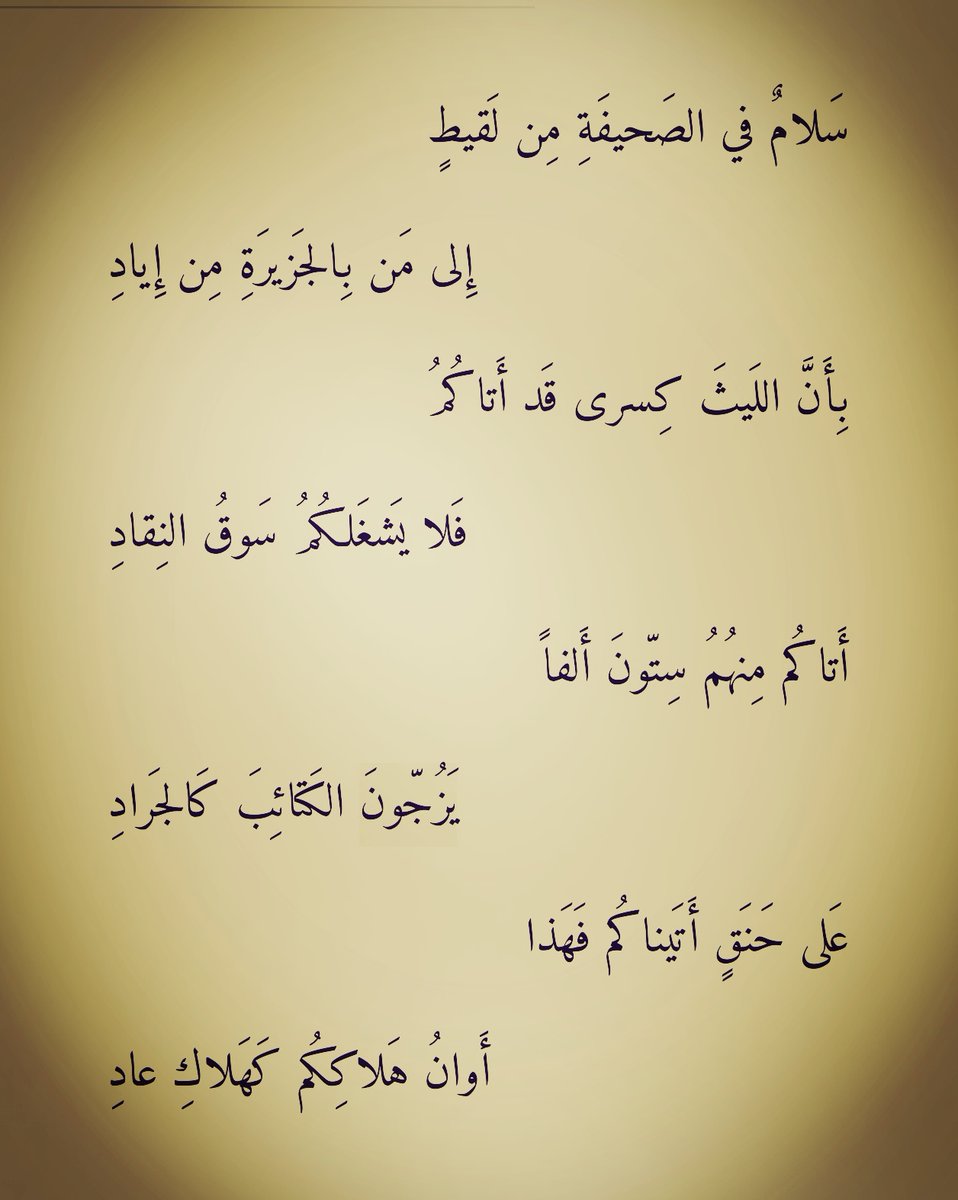 سَلامٌ في الصَحيفَةِ مِن لَقيطٍ
إِلى مَن بِالجَزيرَةِ مِن إِيادِ
بِأَنَّ اللَيثَ كِسرى قَد أَتاكُمُ
فَلا يَشغَلكُمُ سَوقُ النِقادِ
أَتاكُم مِنهُمُ سِتّونَ أَلفاً
يَزُجّونَ الكَتائِبَ كَالجَرادِ
عَلى حَنَقٍ أَتَيناكُم فَهَذا
أَوانُ هَلاكِكُم كَهَلاكِ عادِ